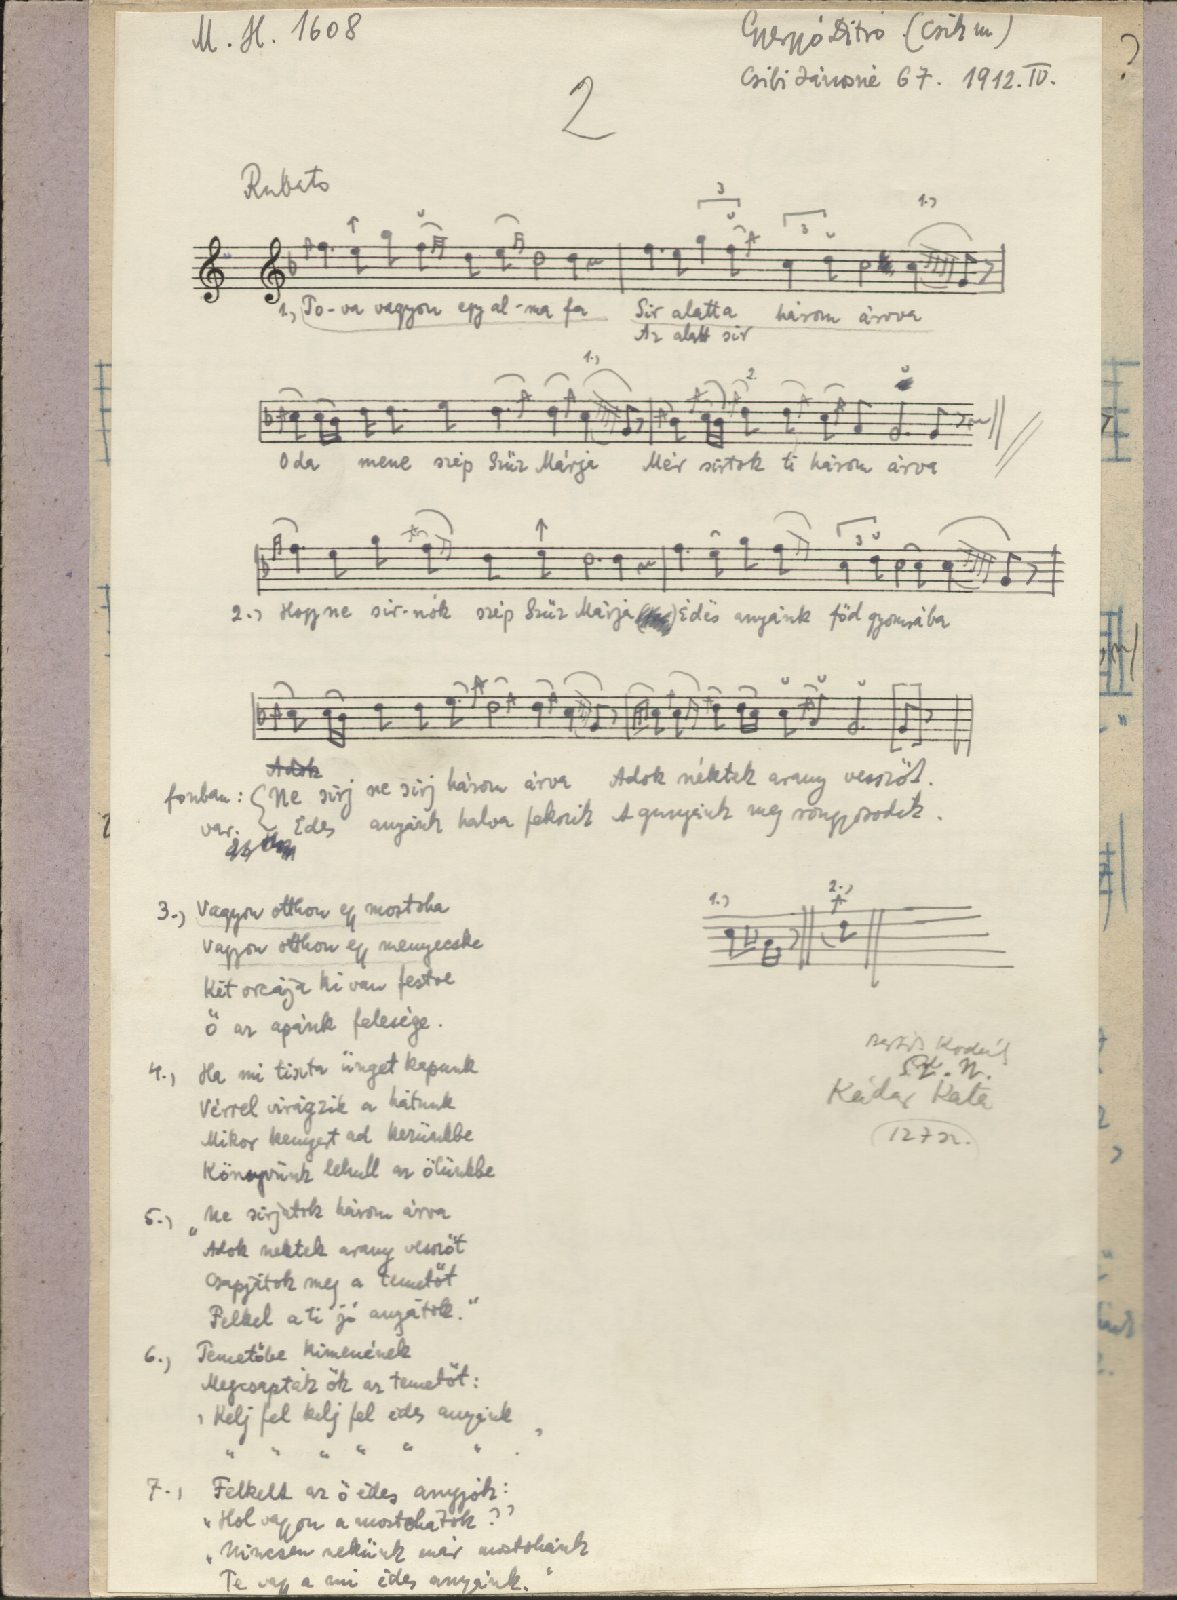 M. H. 1608
Gyergyó Ditró (Csík m)
Csibi Jánosné 67. 1912. IV.
?
2
Rubato
3
3
1.)
1.) To-va vagyon egy al-ma fa Sir alatta három árva
Az alatt sir
1.)
2.
Oda mene szép Szüz Márja Mér sirtok ti három árva
3
2.) Hogyne sir-nók szép Szüz Márja Édes anyánk föd gyomrába
Adok
fonban: Ne sirj ne sirj három árva Adok néktek arany vesszőt.
var. Édes anyánk halva fekszik A gunyánk meg rongyosodik.
3.) Vagyon otthon egy mostoha
Vagyon otthon egy menyecske
Két orcája ki van festve
Ő az apánk felesége.
4.) Ha mi tiszta ünget kapunk
Vérrel virágzik a hátunk
Mikor kenyert ad kezünkbe
Könnyünk lehull az ölünkbe
5.) „Ne sirjatok három árva
Adok nektek arany vesszőt
Csapjátok meg a temetőt
Felkel a ti jó anyátok."
6.) Temetőbe kimenének
Megcsapták ők az temetőt:
„Kelj fel kelj fel édes anyánk
" " " " " " .
7.) Felkelt az ő édes anyjok:
„Hol vagyon a mostohátok?"
„Nincsen nekünk már mostohánk
Te vagy a mi édes anyánk."
1.)
2.)
Kodály
Kádár Kata
127 sz.